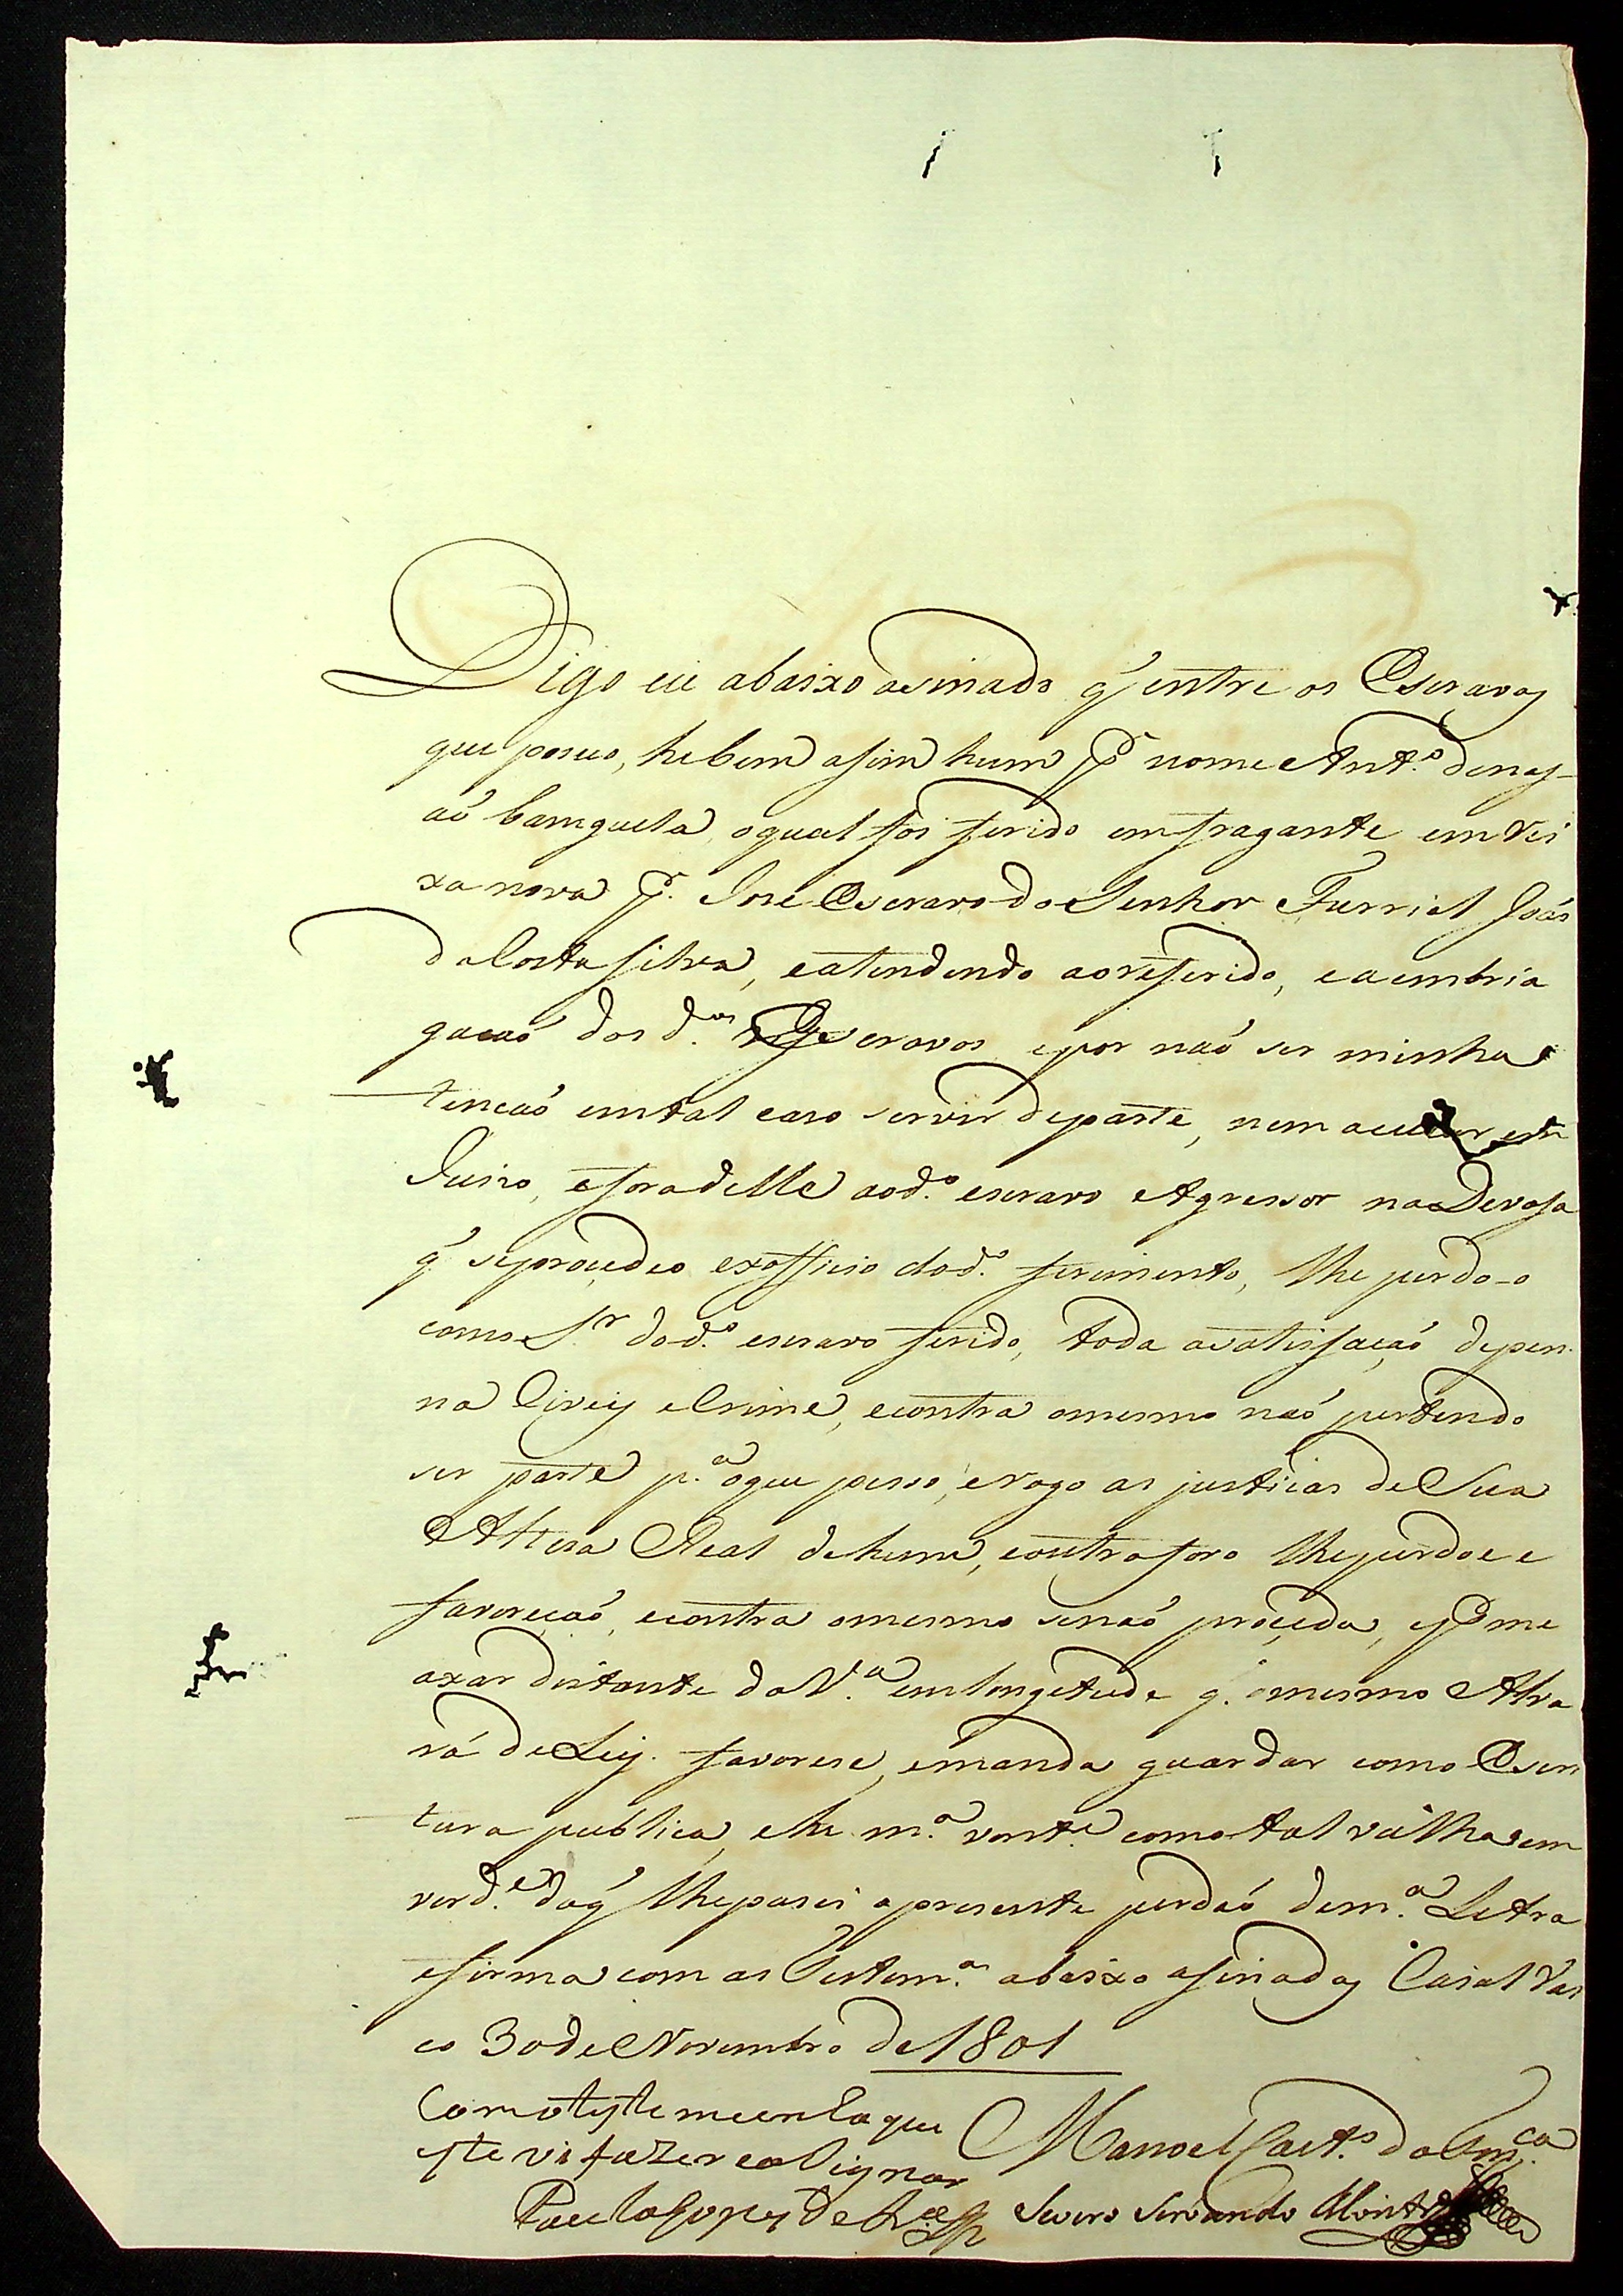 Digo eu abaixo asinado q̃ entre os Escravos
que posuo, he bem asim hum pr nome Antº denas-
aõ bamguela, oqual foi ferido emfragante em rei
xa nova pr. Jose Escravo do Senhor Furriel Joaõ
da Costa Silva, eatendendo aoreferido, eaembria
gacaõ dos d.os Escravos epor naõ ser minha
tencaõ emtal caso servir departe, nem acuzar em
Juiso, eforadelle aod.º escravo Agressor na Devasa
q̃ seprocedeo exofficio dod.º ferimento, lhe perdo-o
como Sr dod.º escravo ferido, toda asatisfaçaõ depen-
na Civey eCrime, econtra omesmo naõ pertendo
ser parte p.ª oque peso, erogo as justicas de Sua
Altesa Real dehum, eoutroforo lhe perdoe e
favoreçaõ, econtra omesmo senaõ proçeda, epr me
axar distante da V.ª em longetude q. omesmo Alva
rá de Ley favorese, emanda guardar como Escri
tura publica, ehe m.ª vont.e como tal valha eem
verd.e doq̃ lhepasei apresente perdaõ dem.ª Letra
efirma com as Testem.as abaixo asinadas Casal Vas
co 30 de Novembro de 1801
Como testemeenha que
este vi fazer eaSignar
Manoel Caet.º da Fon.ca
Paulo Lopes de
Severo Servando